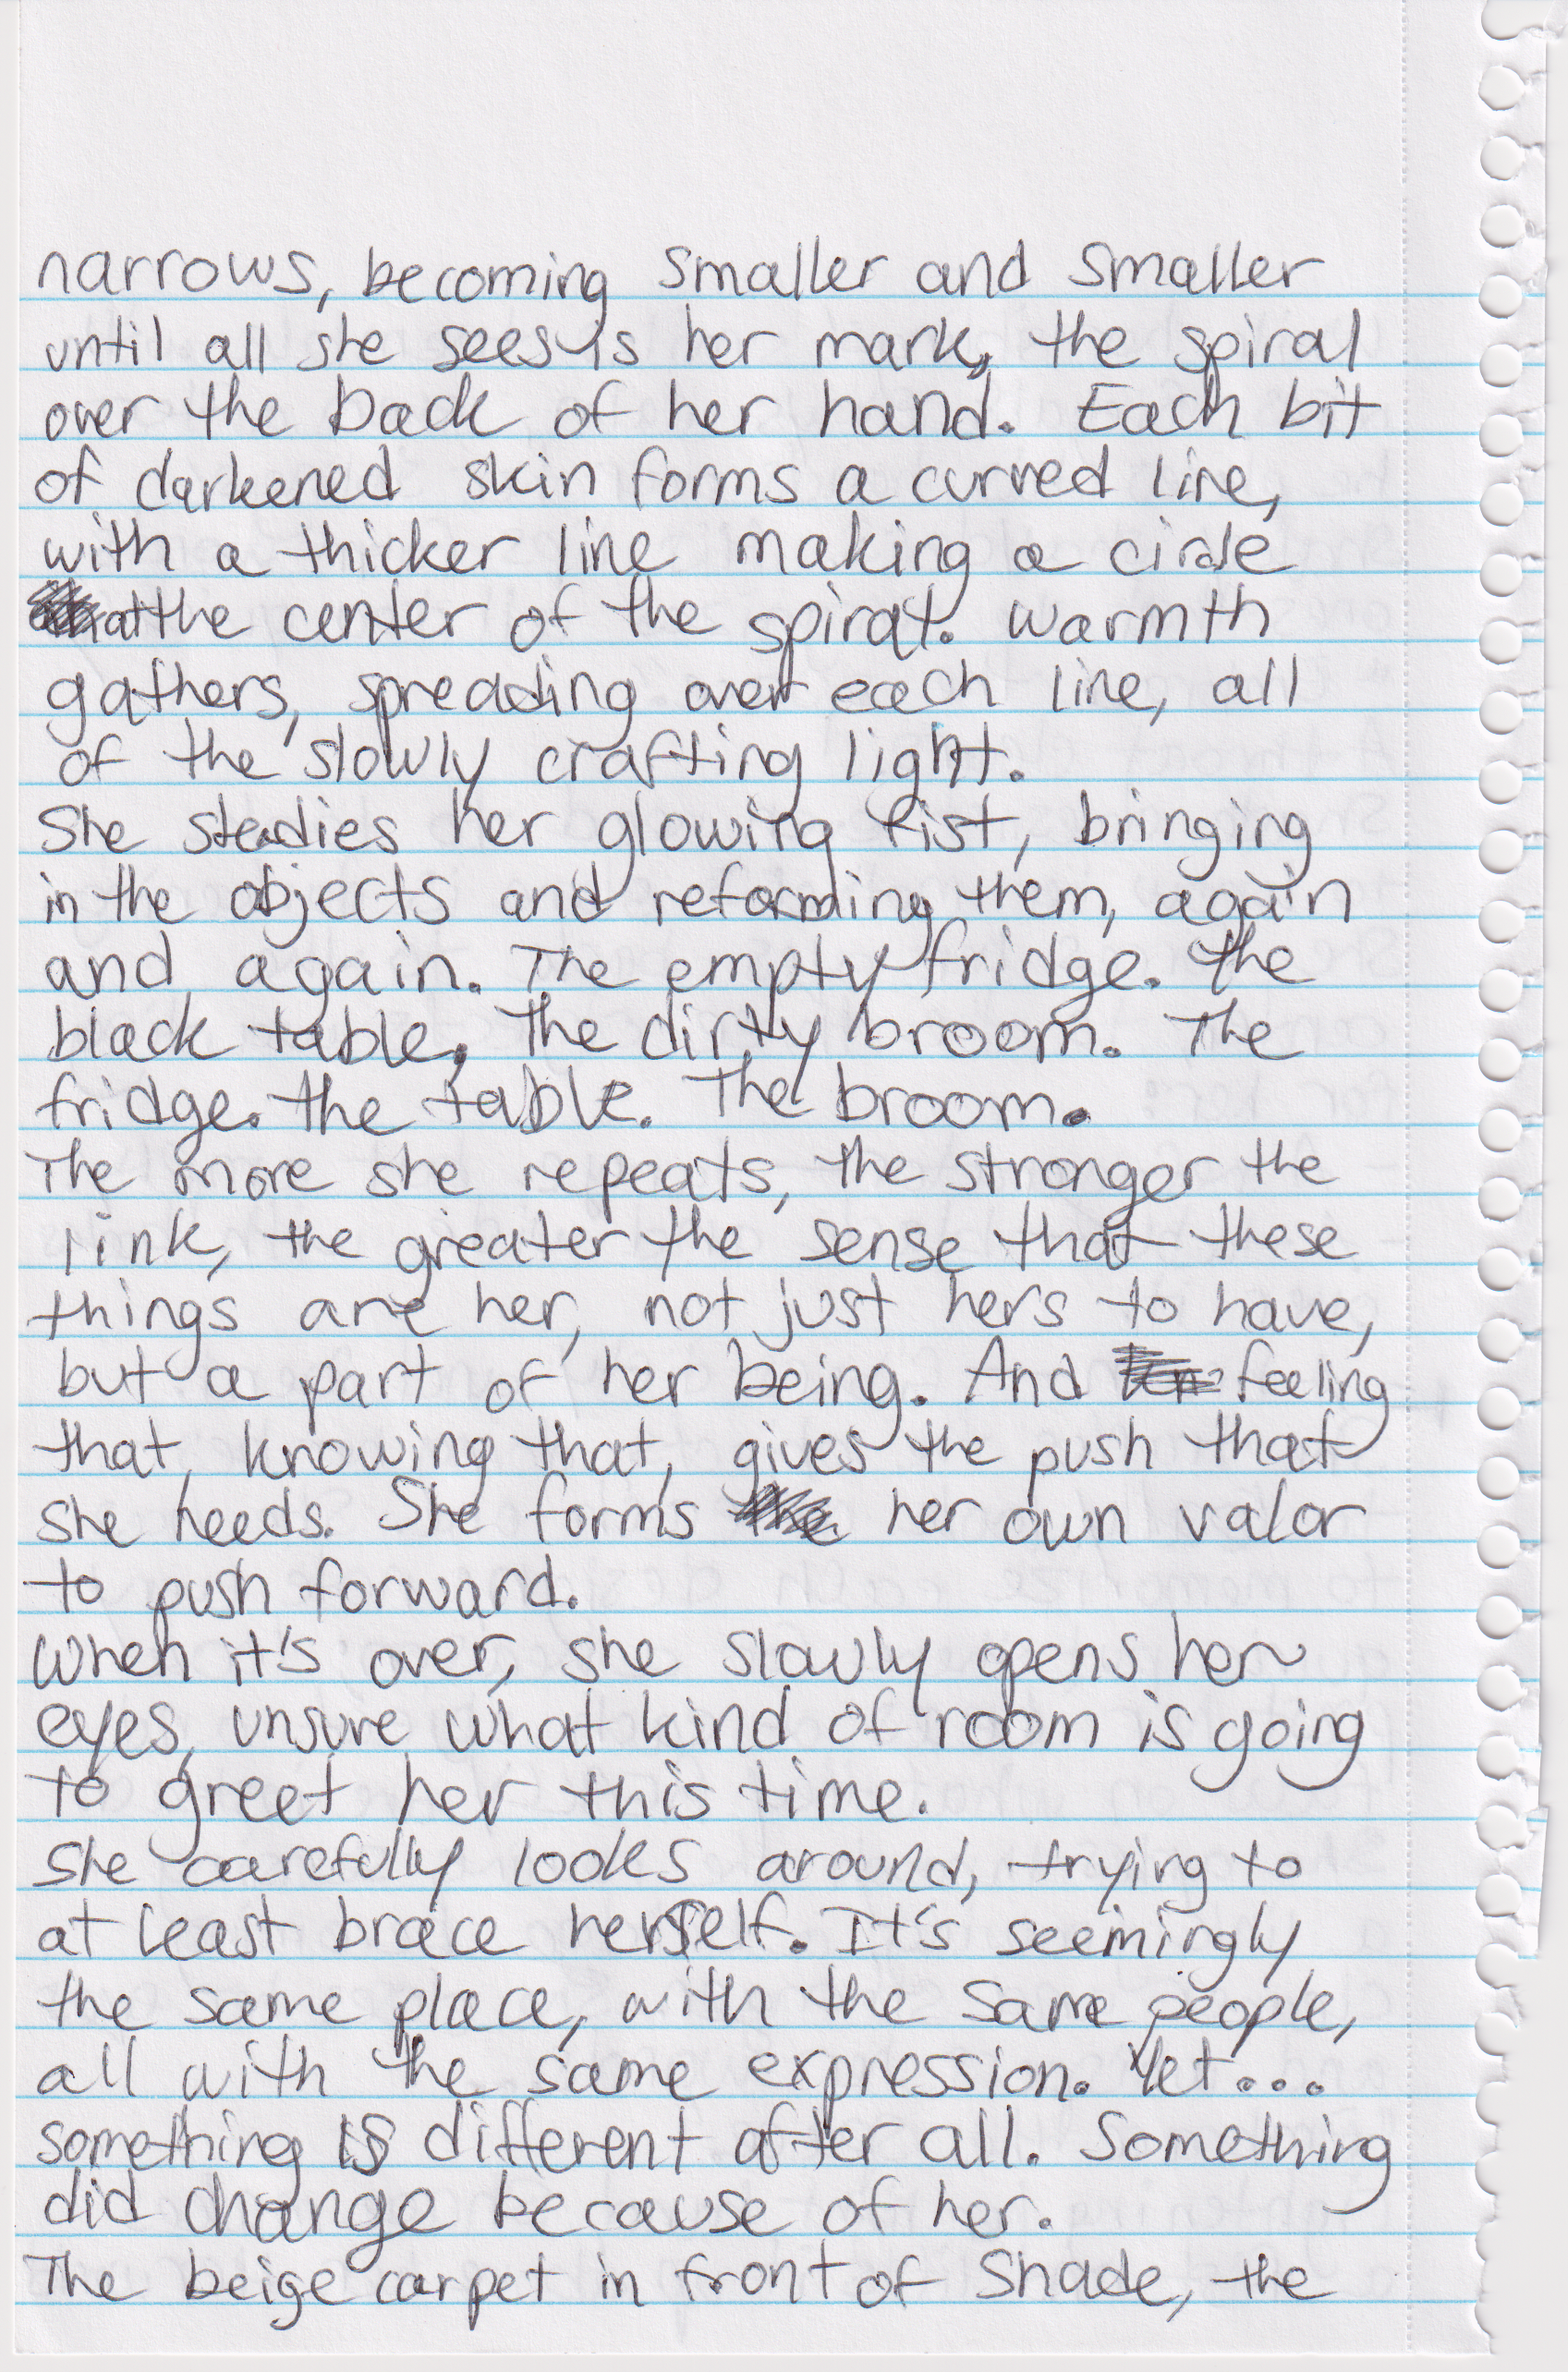 narrows, becoming smaller and smaller
until all she sees is her mark, the spiral
over the back of her hand. Each bit
of darkened skin forms a curved line,
with a thicker line making a circle
at the center of the spiral. Warmth
gathers, spreading over each line, all
of the slowly crafting light.
She steadies her glowing fist, bringing
in the objects and reforming them, again
and again. The empty fridge. The
black table. The dirty broom. The
fridge. The table. The broom.
The more she repeats, the stronger the
link, the greater the sense that these
things are her, not just hers to have,
but a part of her being. And feeling
that, knowing that, gives the push that
she needs. She forms her own valor
to push forward.
When it's over, she slowly opens her
eyes, unsure what kind of room is going
to greet her this time.
She carefully looks around, trying to
at least brace herself. It's seemingly
the same place, with the same people,
all with the same expression. Yet...
something is different after all. Something
did change because of her.
The beige carpet in front of Shade, the